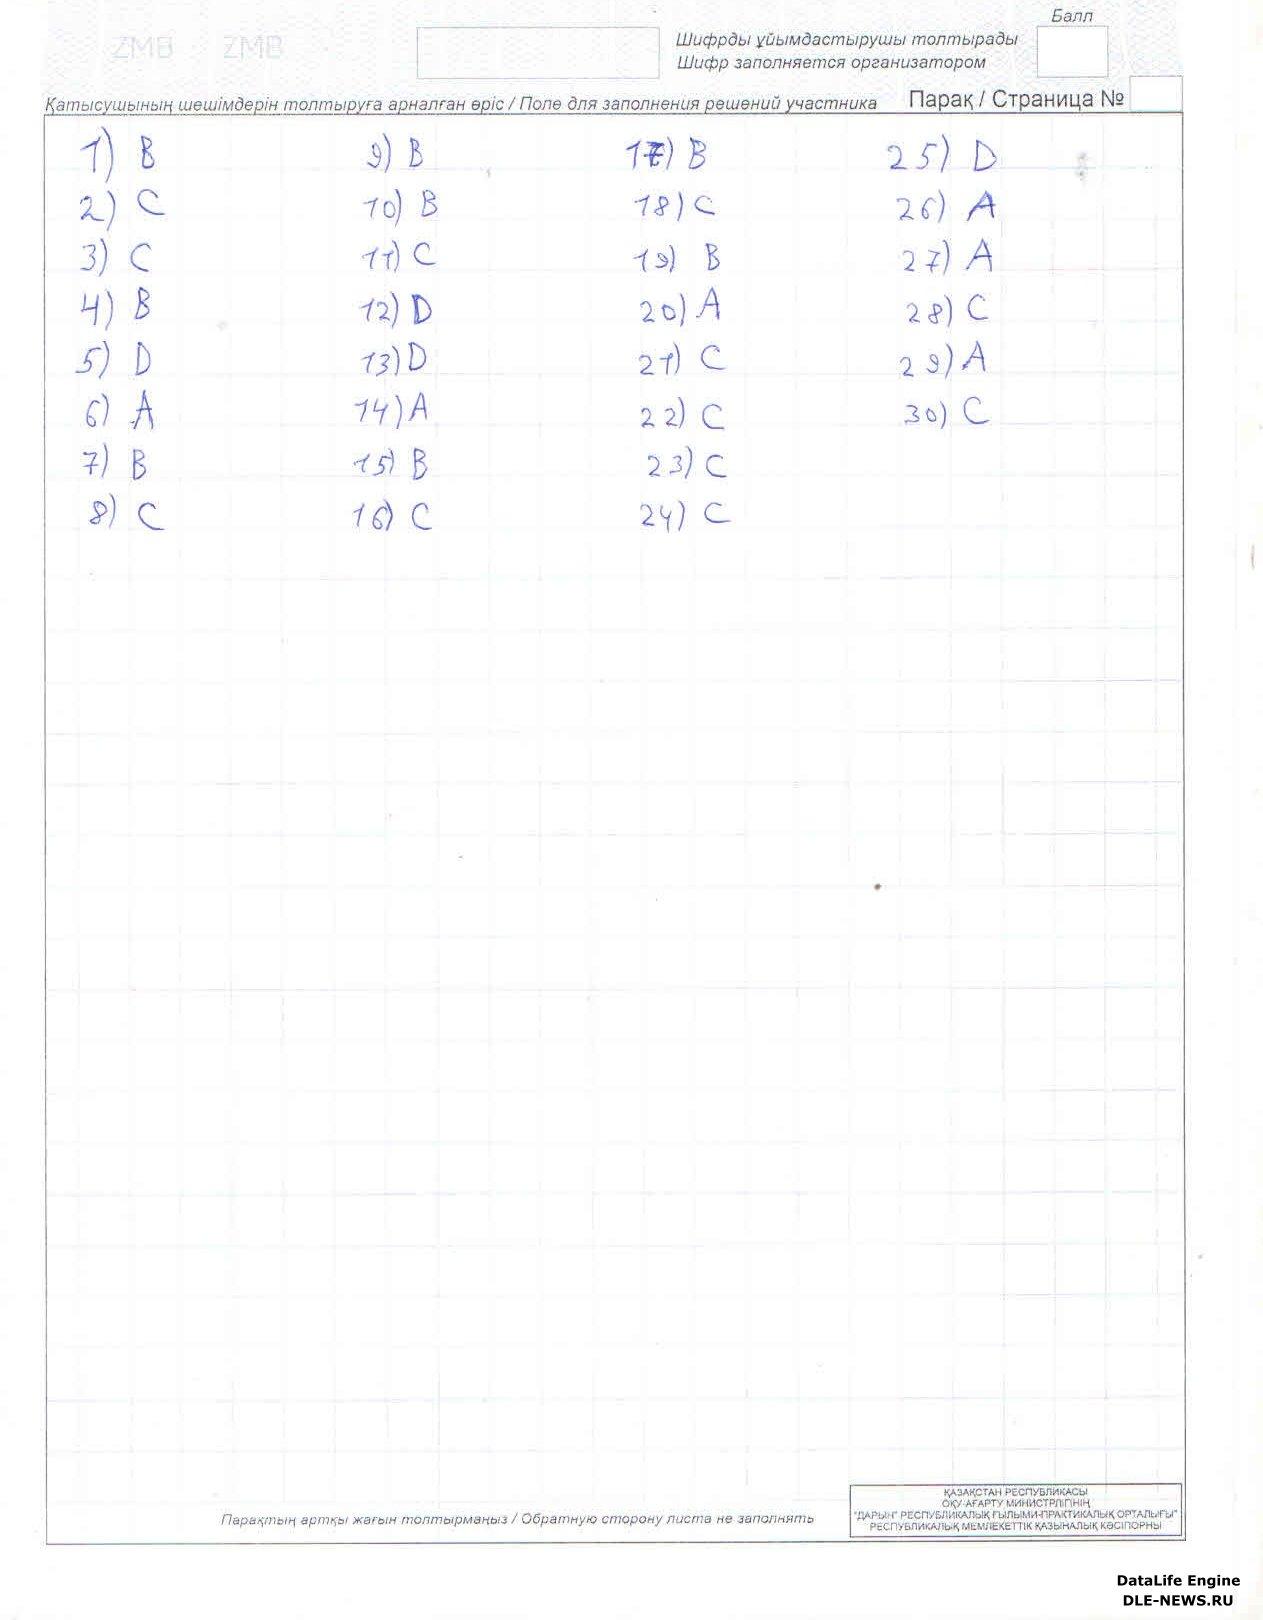 ZMB ZMB
Балл
Шифрды ұйымдастырушы толтырады
Шифр заполняется организатором
Қатысушының шешімдерін толтыруға арналған өріс / Поле для заполнения решений участника Парақ / Страница №
1) B 9) B 17) B 25) D
2) C 10) B 18) C 26) A
3) C 11) C 19) B 27) A
4) B 12) D 20) A 28) C
5) D 13) D 21) C 29) A
6) A 14) A 22) C 30) C
7) B 15) B 23) C
8) C 16) C 24) C
Парақтың артқы жағын толтырмаңыз / Обратную сторону листа не заполнять
ҚАЗАҚСТАН РЕСПУБЛИКАСЫ
ОҚУ-АҒАРТУ МИНИСТРЛІГІНІҢ
"ДАРЫН" РЕСПУБЛИКАЛЫҚ ҒЫЛЫМИ-ПРАКТИКАЛЫҚ ОРТАЛЫҒЫ"
РЕСПУБЛИКАЛЫҚ МЕМЛЕКЕТТІК ҚАЗЫНАЛЫҚ КӘСІПОРНЫ
DataLife Engine
DLE-NEWS.RU